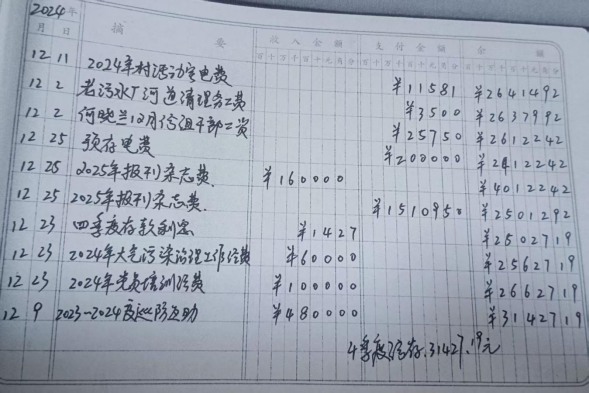 2024年
月 日 摘 要 收入金额 支付金额 余 额
百十万千百十元角分 百十万千百十元角分 百十万千百十元角分
12 11 2024年村活动室电费 ¥11581 ¥2641492
12 2 老污水厂河道清理务工费 ¥3500 ¥2637992
12 2 何晓兰12月信组干部工资 ¥25750 ¥2612242
12 25 预存电费 ¥200000 ¥2412242
12 25 2025年报刊杂志费 ¥1600000 ¥4012242
12 25 2025年报刊杂志费 ¥1510950 ¥2501292
12 23 四季度存款利息 ¥1427 ¥2502719
12 23 2024年大气污染治理工作经费 ¥60000 ¥2562719
12 23 2024年党员培训经费 ¥100000 ¥2662719
12 9 2023-2024度 防互助 ¥480000 ¥3142719
4季度结存:31427.19元